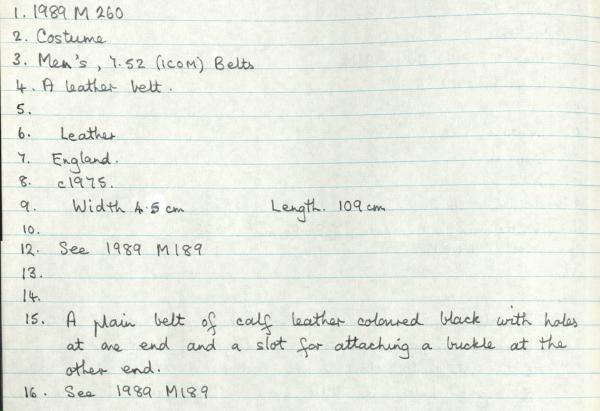 1. 1989 M 260
2. Costume
3. Men's, 7.52 (ICOM) Belts
4. A leather belt.
5.
6. Leather
7. England.
8. c1975.
9. Width 4.5 cm Length. 109 cm
10.
12. See 1989 M189
13.
14.
15. A plain belt of calf leather coloured black with holes
at one end and a slot for attaching a buckle at the
other end.
16. See 1989 M189